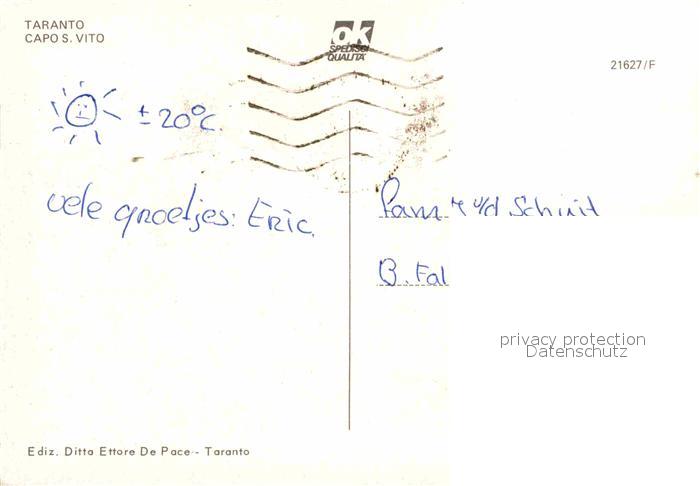 TARANTO
CAPO S. VITO
ok
SPEDISCI
QUALITÀ
21627/F
± 20°C.
vele groetjes: Eric.
Fam v/d Schuit
B. Fal
privacy protection
Datenschutz
Ediz. Ditta Ettore De Pace - Taranto